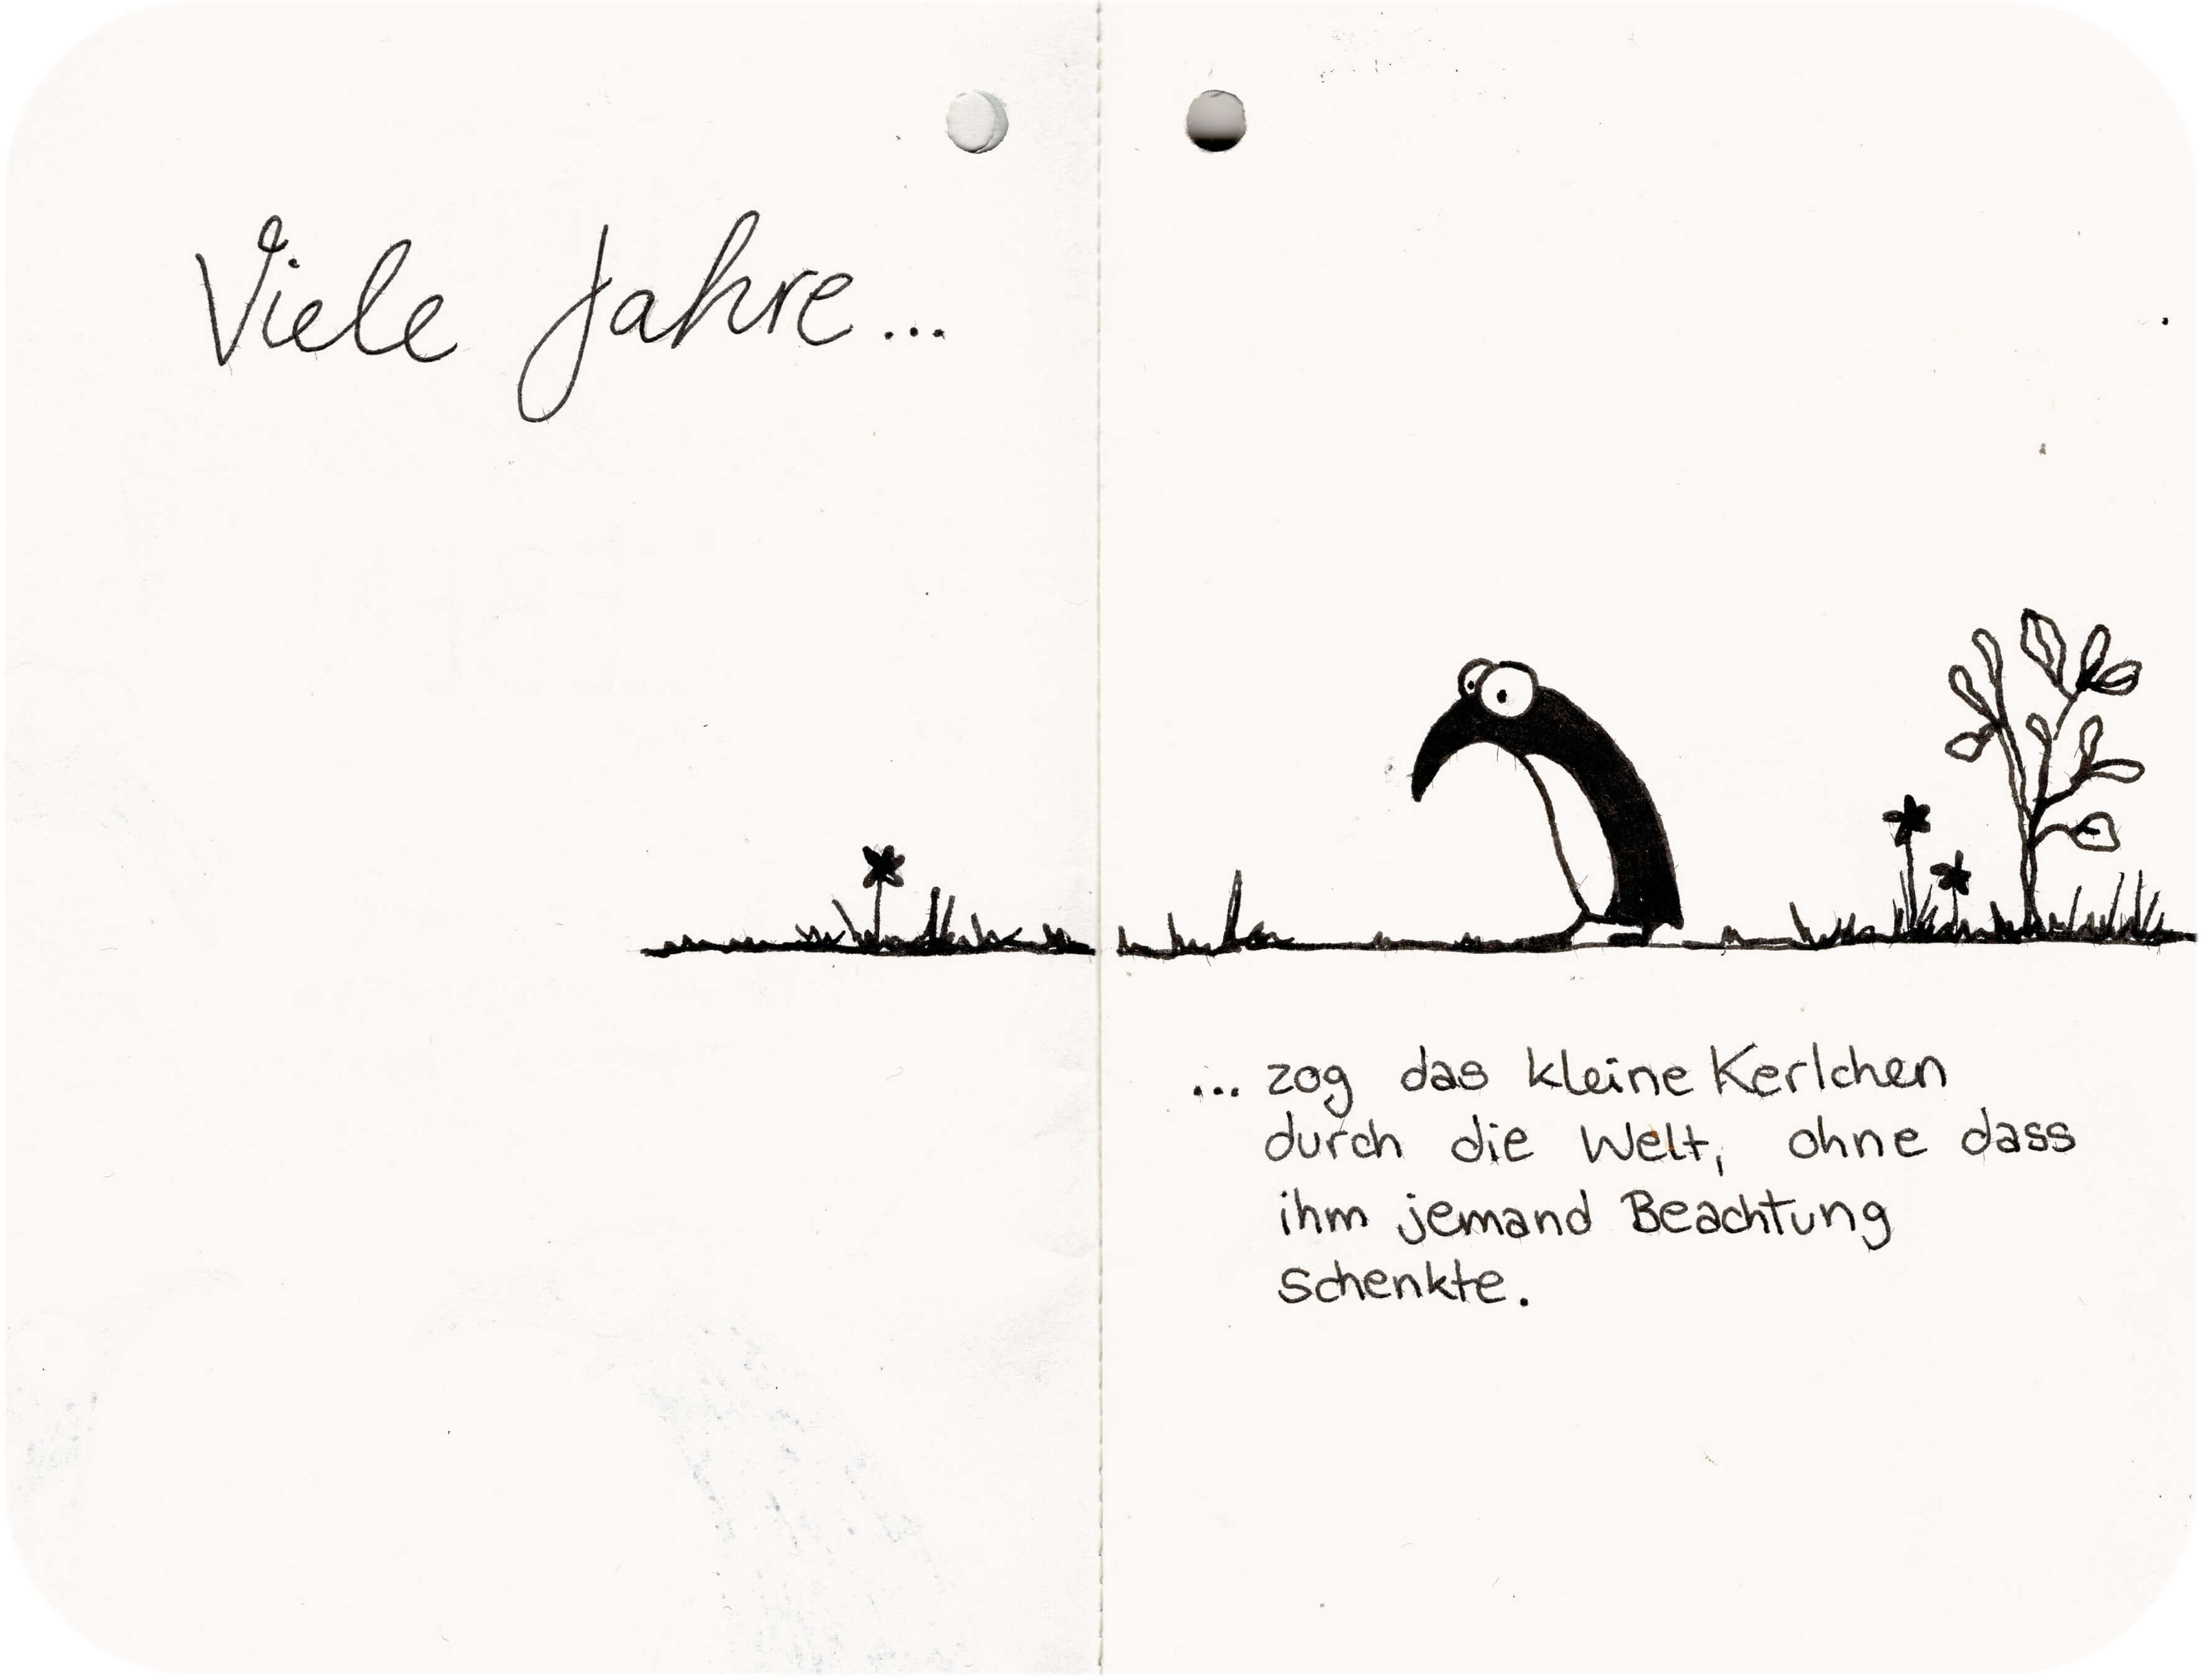 Viele Jahre...
... zog das kleine Kerlchen
durch die Welt, ohne dass
ihm jemand Beachtung
schenkte.